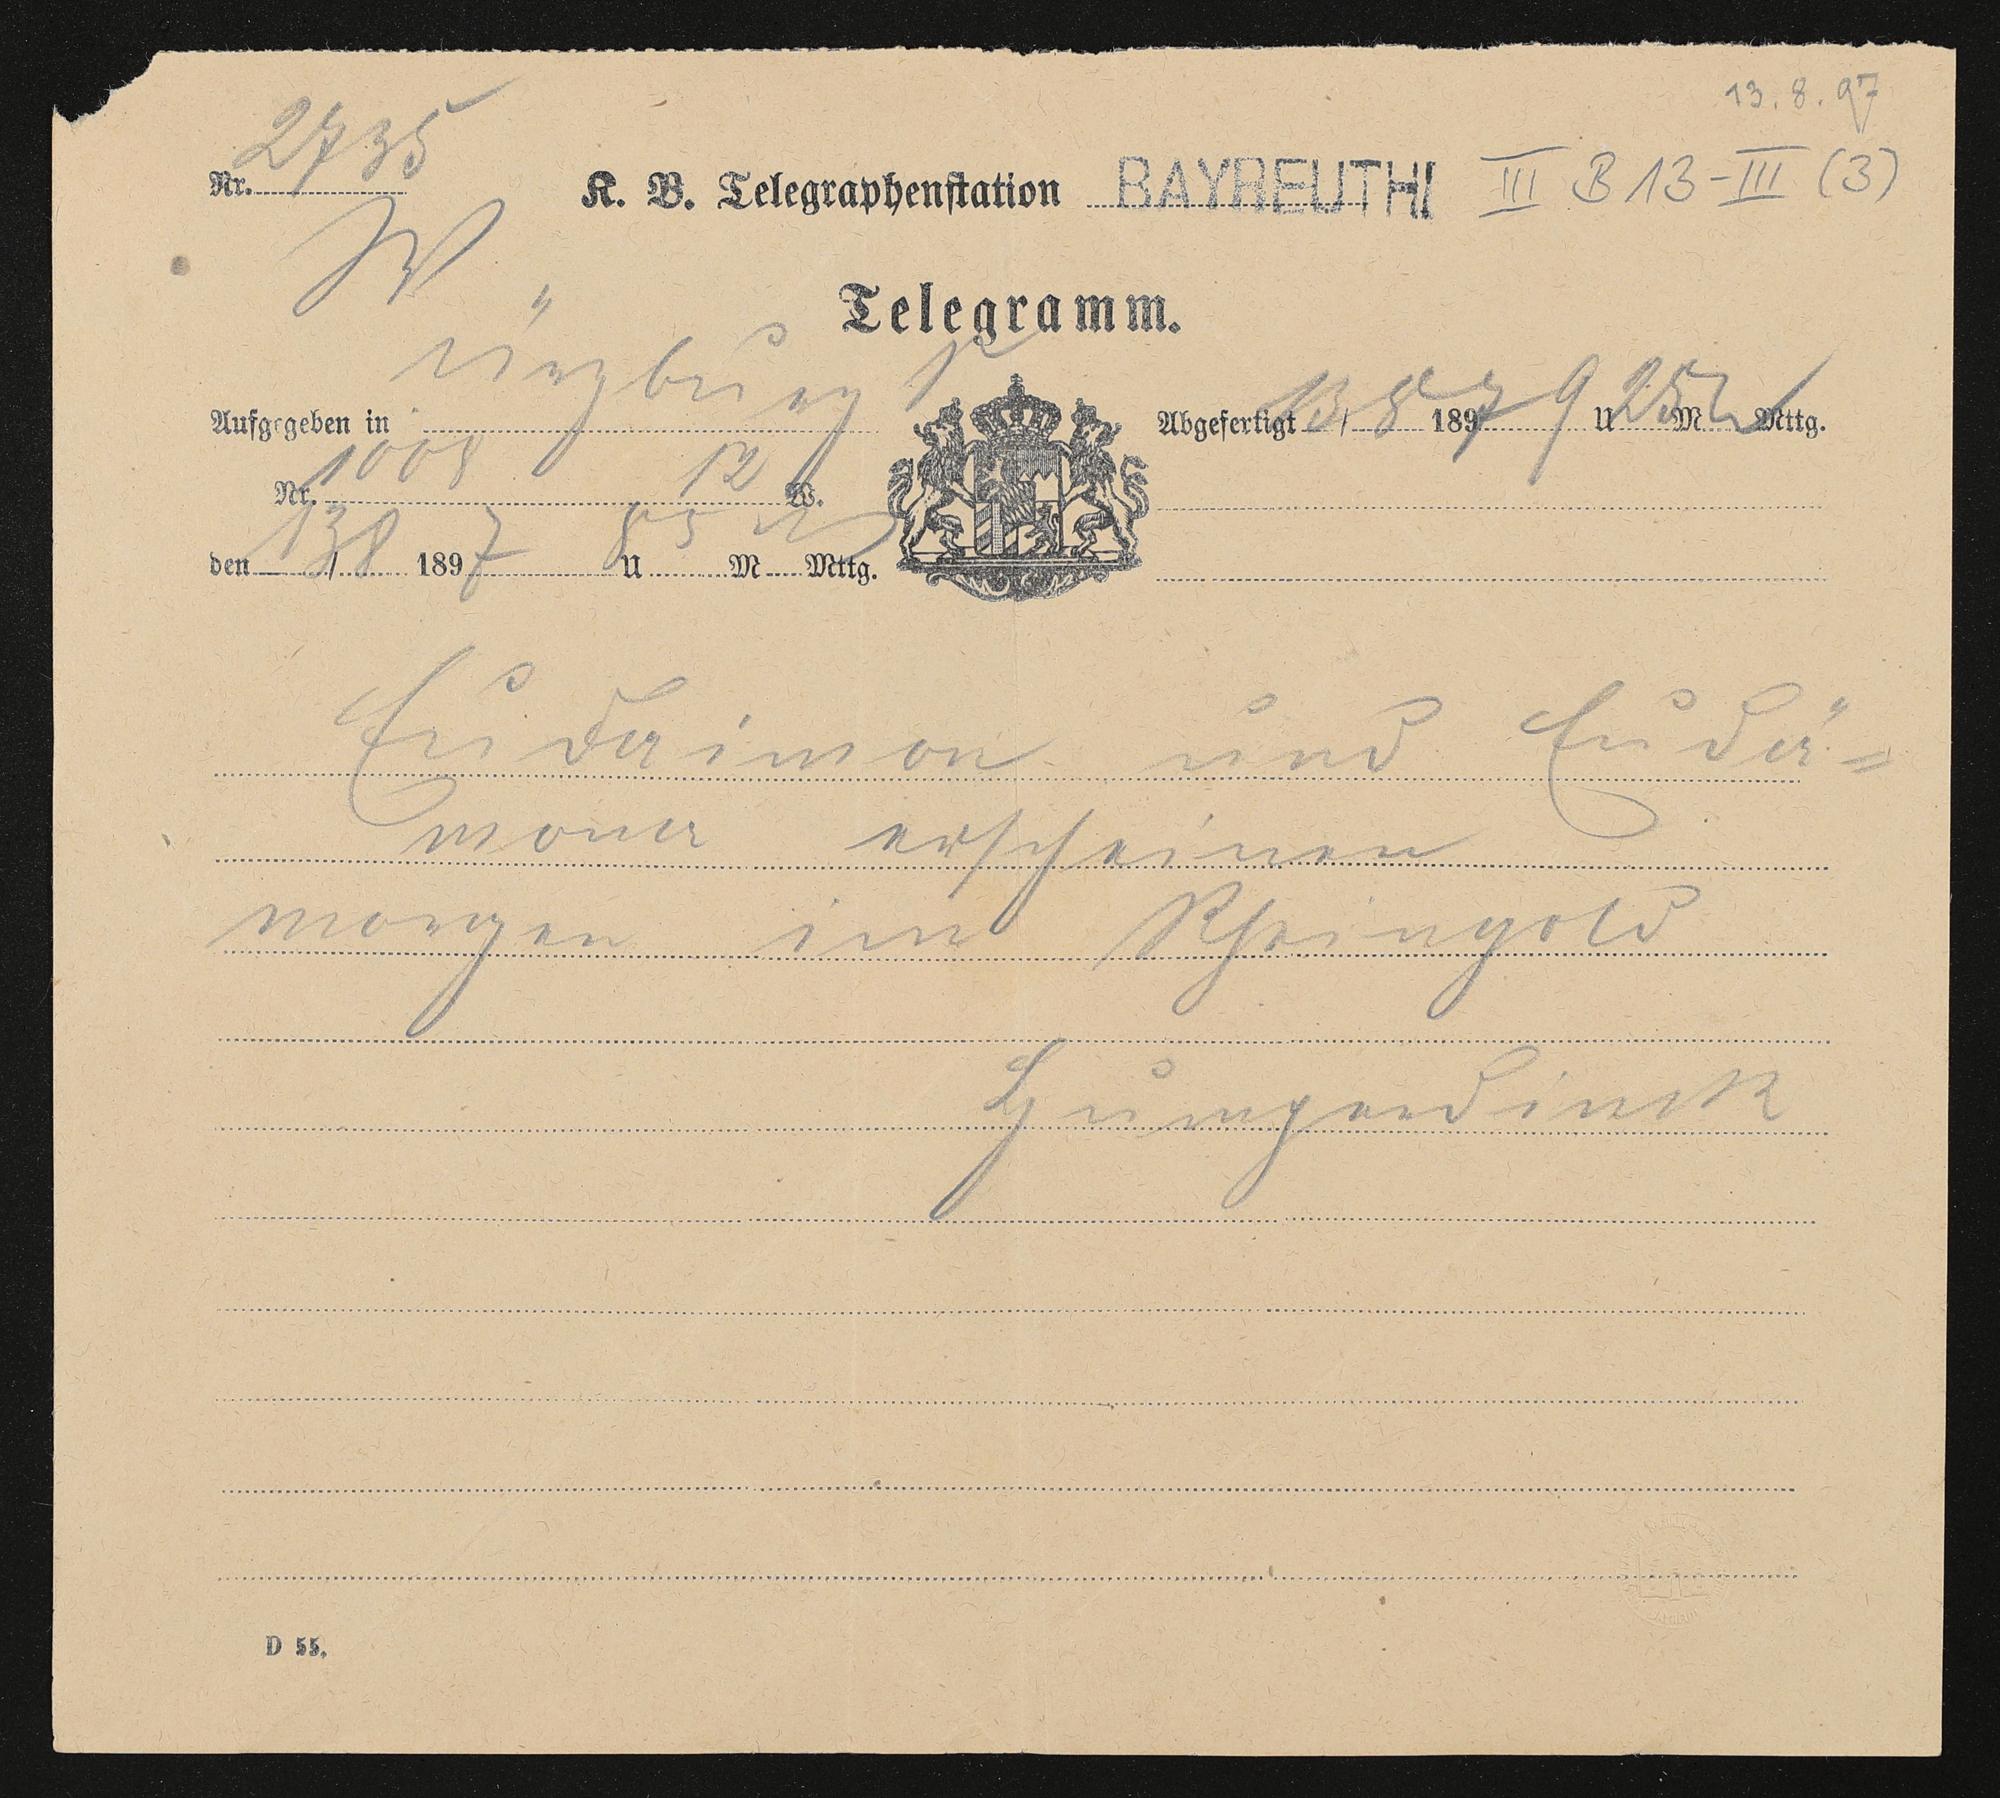 13.8.97
Nr. 2735
K. B. Telegraphenstation BAYREUTH I III B 13-III (3)
Telegramm.
Aufgegeben in Würzburg
Abgefertigt 13/8 1897 9 U 25 M Mttg.
Nr. 1008 12 W.
den 13/8 1897 8 U 5 M Mttg.
Eudaimon und Eudä=
mona erscheinen
morgen im Rheingold
Humperdinck
D 55.